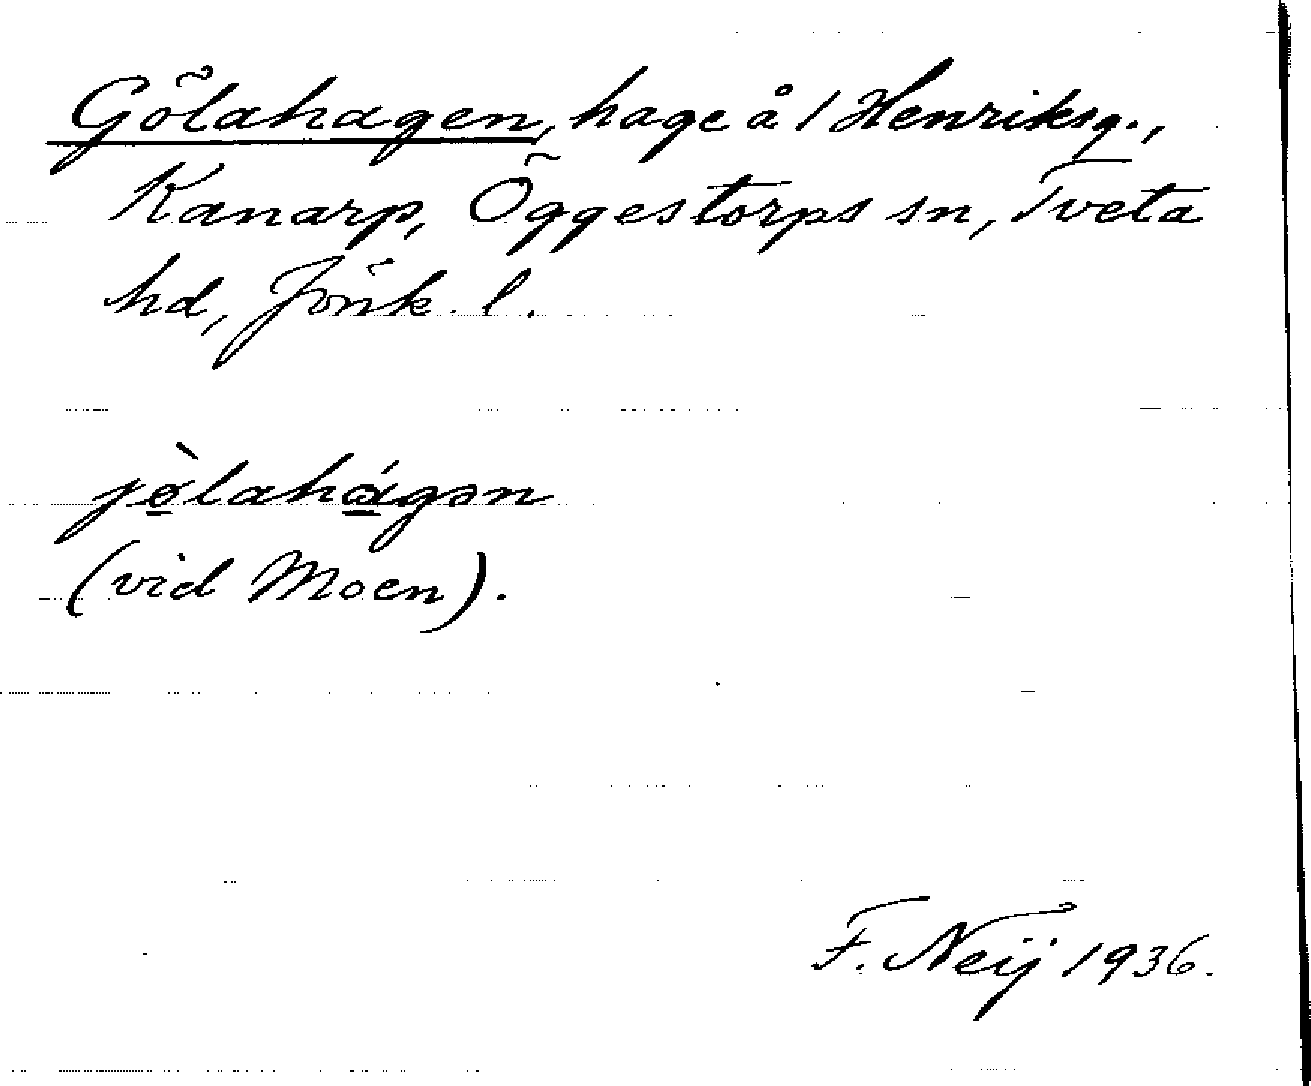 Gölahagen, hage å 1 Henriksg.,
Kanarp, Öggestorps sn, Tveta
hd, Jönk. l.
jòlahágən
(vid Moen).
F. Neij 1936.